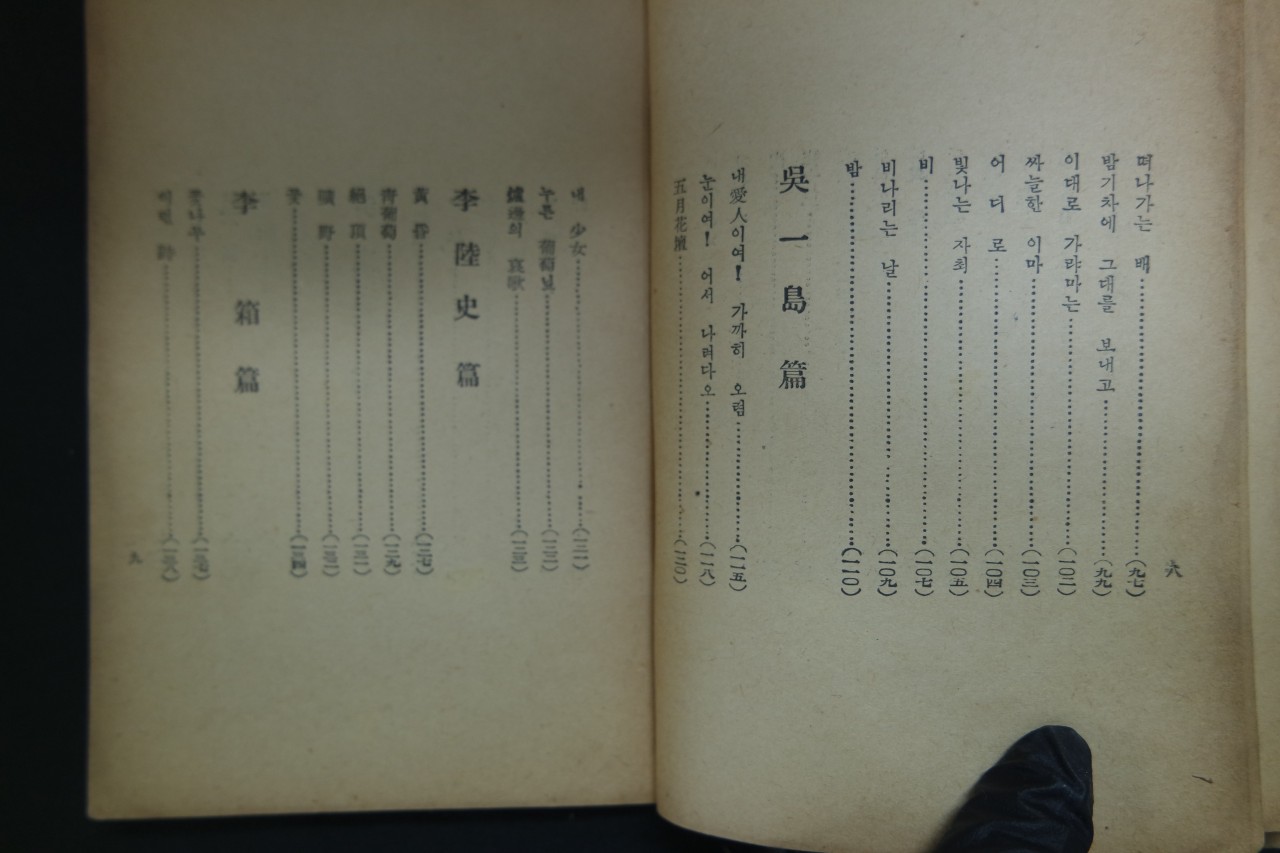 떠나가는 배……(九七)
밤기차에 그대를 보내고……(九九)
이대로 가랴마는……(一〇二)
싸늘한 이마……(一〇三)
어디로……(一〇四)
빛나는 자최……(一〇五)
비……(一〇七)
비나리는 날……(一〇九)
밤……(一一〇)
吳一島篇
내愛人이여! 가까히 오렴……(一一五)
눈이여! 어서 나려다오……(一一八)
五月花壇……(一二〇)
六
내 少女……(一二一)
누른 葡萄닢……(一二二)
爐邊의 哀歌……(一二三)
李陸史篇
黃昏……(一二七)
靑葡萄……(一二九)
絶頂……(一三一)
曠野……(一三二)
꽃……(一三四)
李箱篇
꽃나무……(一三七)
九